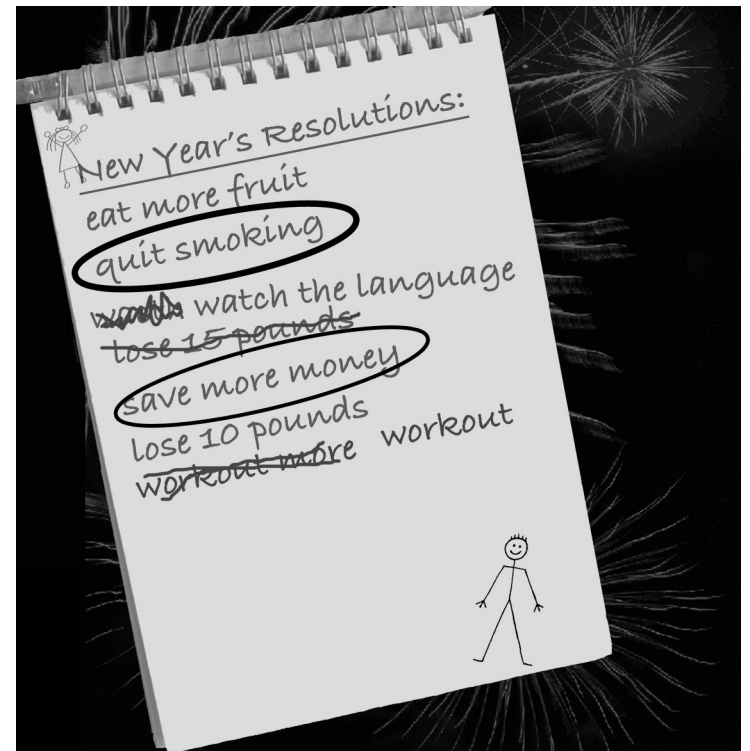 New Year's Resolutions:
eat more fruit
quit smoking
watch the language
lose 15 pounds
save more money
lose 10 pounds
workout more workout